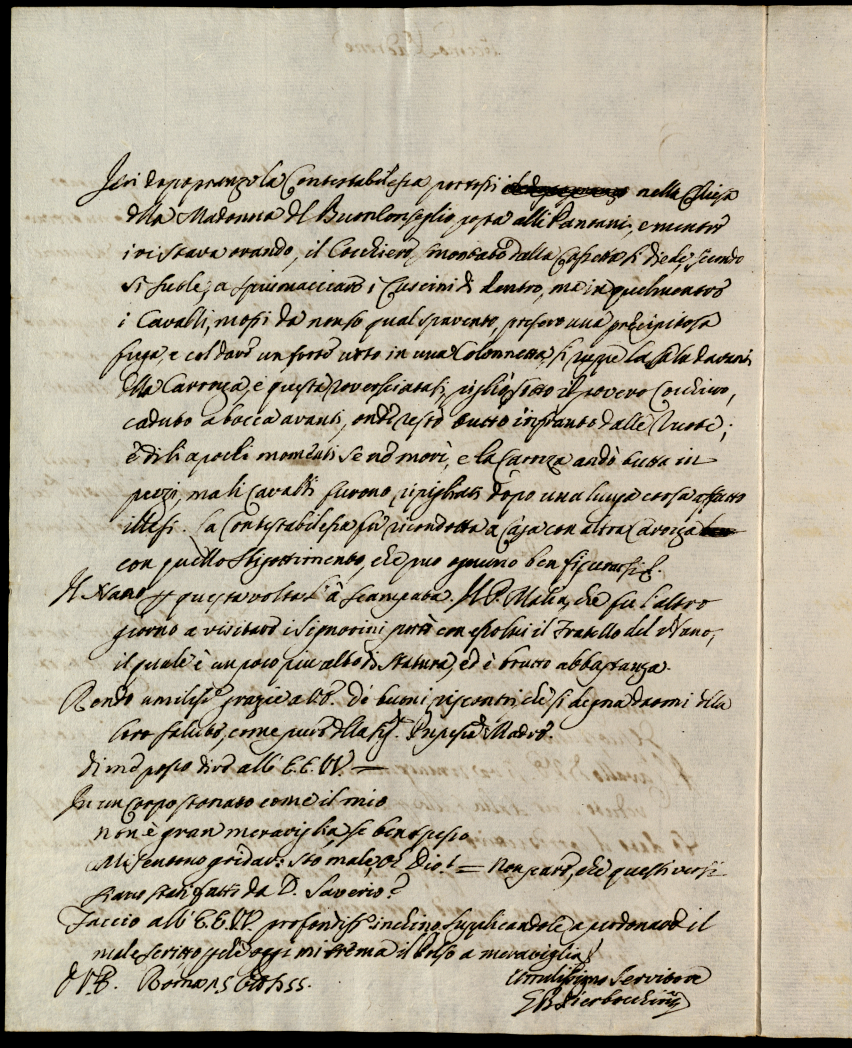 Jeri dopo pranzo la Contestabilessa portossi nella Chiesa
della Madonna del Buon Conseglio posta alli Pantani, e mentre
ivi stava orando, il Cocchiero, smontato dalla Cassetta si diede, secondo
si suole, a spiumacciare i Cuscini di dentro, ma in quel mentre
i Cavalli, mossi da non so qual spavento, presero una precipitosa
fuga, e col dare un forte urto in una Colonnetta, si ruppe la sala davanti
della Carrozza, e questa roversciatasi, pigliò sotto il povero Cocchiero,
caduto a bocca avanti, onde restò tutto infranto dalle Ruote;
e di lì a pochi momenti se ne morì, e la Carozza andò tutta in
pezzi, ma li Cavalli furono ripigliati dopo una lunga corsa affatto
illesi. La Contestabilessa fù ricondotta a Casa con altra Carozza
con quello sbigottimento, che può ognuno ben figurarsi.
Il Nano p questa volta l'à scampata. Il P. Malia, che fu l'altro
giorno a visitare i Signorini portò con esso lui il Fratello del Nano,
il quale è un poco più alto di statura, ed è brutto abbastanza.
Rendo umiliss.e grazie a V.E. de buoni riscontri che si degna darmi della
loro salute, come pure della Sig.ra Madre.
Di me posso dire all' E.E. VV. =
In un Corpo stonato come il mio
non è gran meraviglia, se ben spesso
Mi sentono gridar: stò male, oh Dio! = Non pare, che questi versi
siano stati fatti da D. Saverio?
Faccio all' E.E. VV. profondiss.o inchino supplicandole a perdonare il
male scritto, che oggi mi trema il Polso a meraviglia
D V.E. Roma 15
Umilissimo Servitore